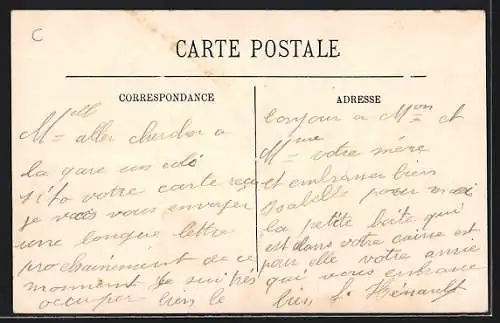 C
CARTE POSTALE
CORRESPONDANCE
Mell aller chercher a
la gare un coli
votre carte reçu
je vais vous envoyer
une longue lettre
prochainement de ce
moment je suis très
occuper bien le
ADRESSE
bonjour a Mon et
Mme votre mère
et embrasser bien
Isabelle pour moi
la petite boite qui
est dans votre caisse est
pour elle votre amie
qui vous embrasse
bien f. Hénault